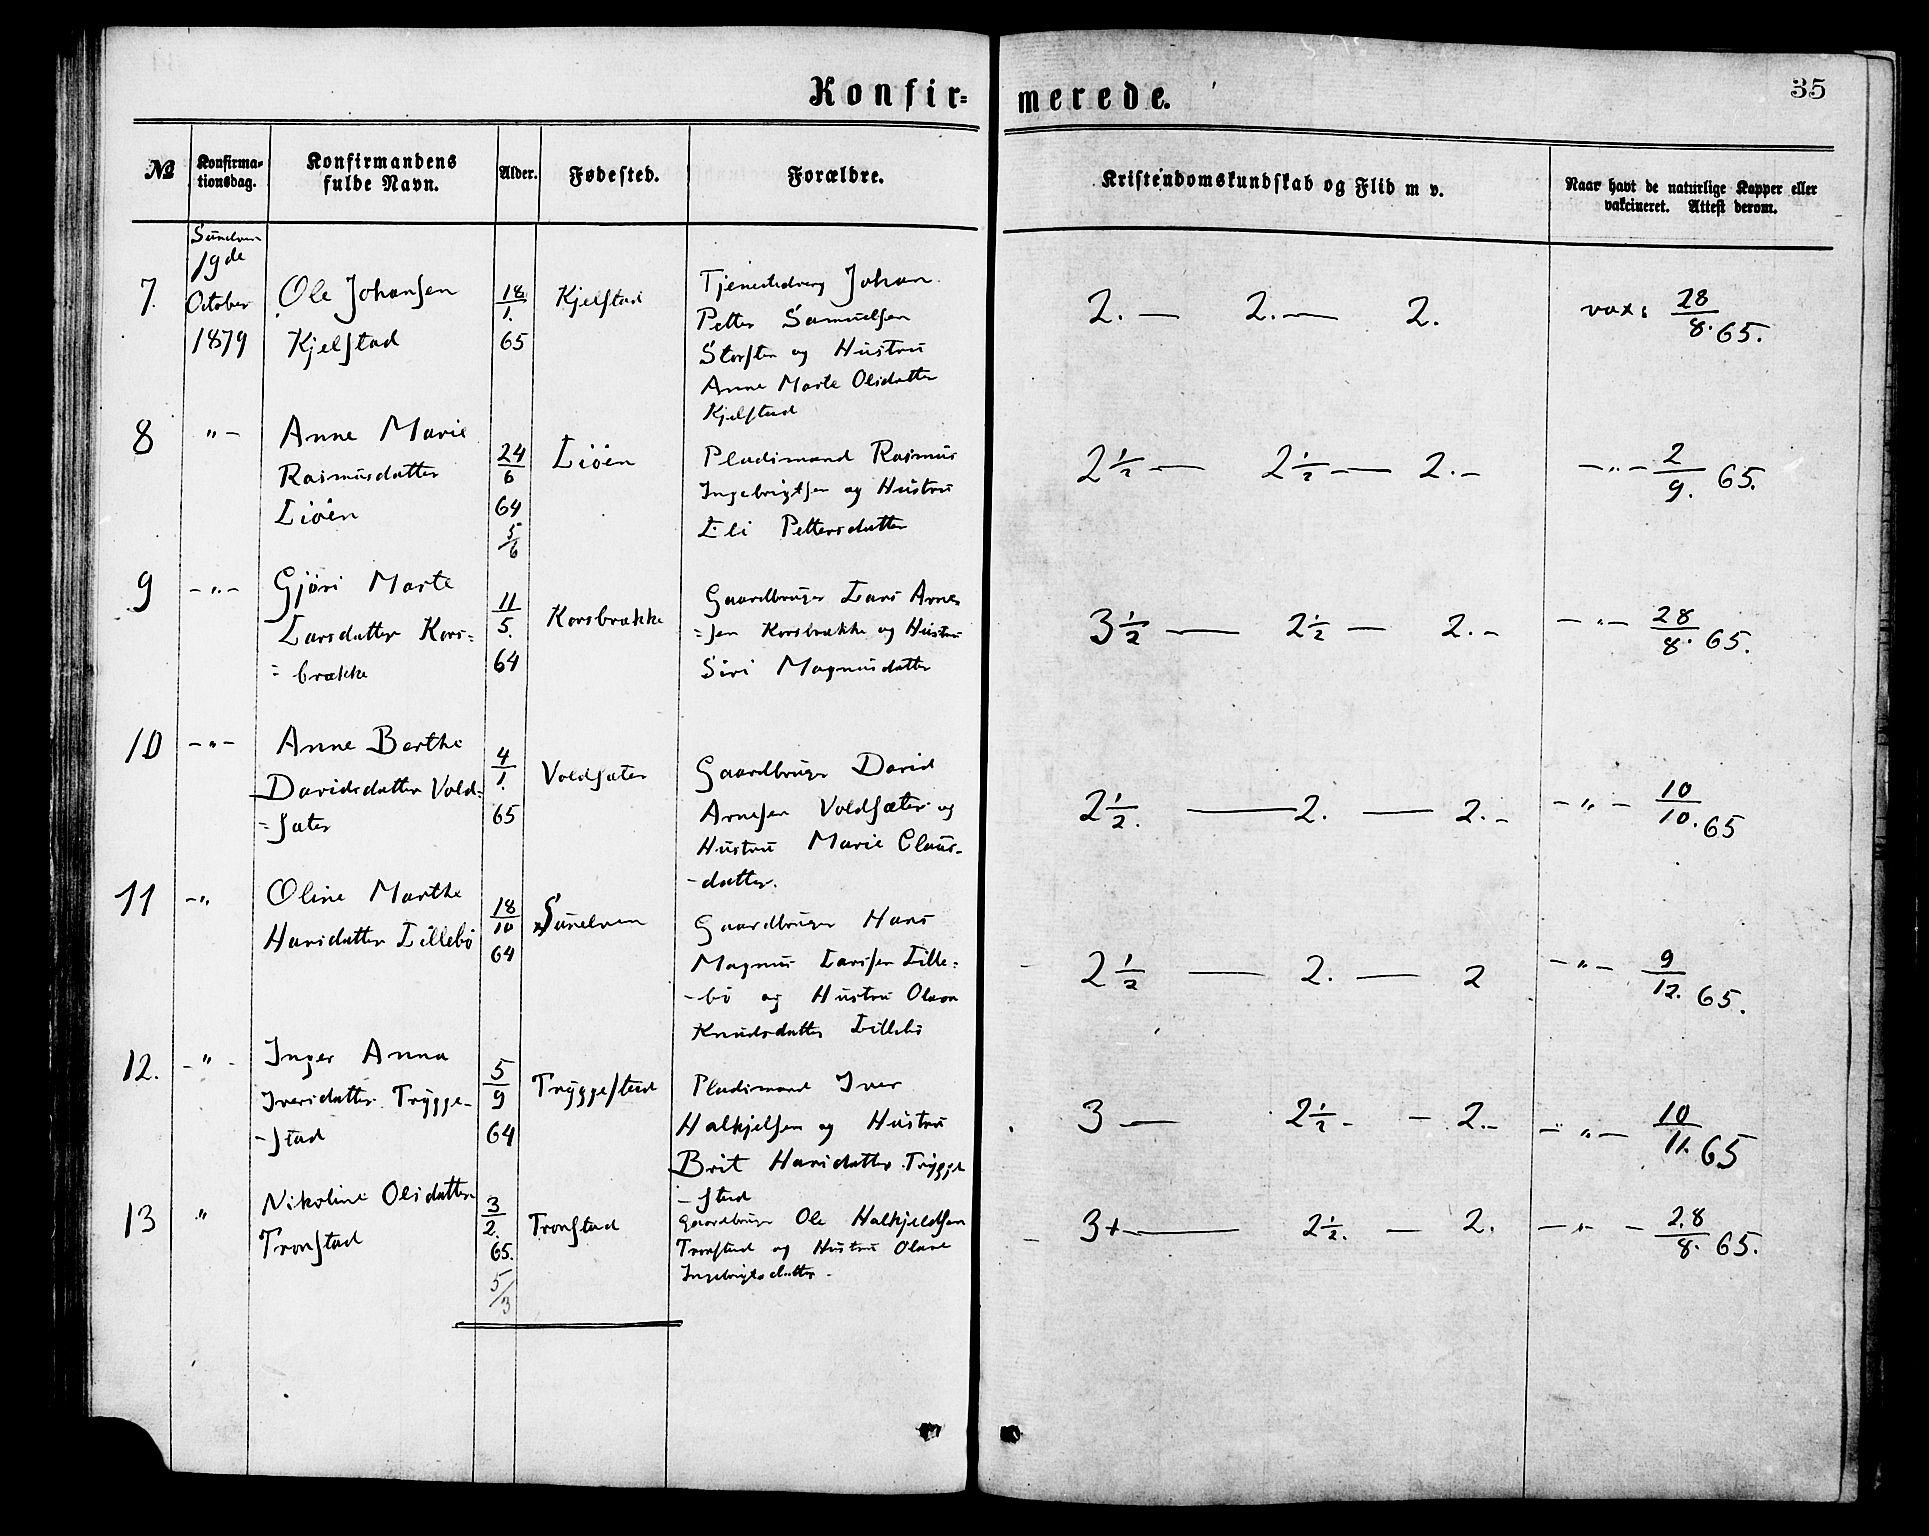 Konfir-
merede.
35
№ Konfirma-tionsdag. Konfirmandens fulde Navn. Alder. Fødested. Forældre. Kristendomskundskab og Flid m v. Naar havt de naturlige Kopper eller vakcineret. Attest derom.
Sunelven
19de
October
1879
7. Ole Johansen
Kjelstad
18/1.
65
Kjelstad
Johan
Petter Samuelsen
Storsten og Hustru
Anne Marte Olsdatter
Kjelstad
2. — 2. — 2.
vax: 28/8. 65.
8 "– Anne Marie
Rasmusdatter
Liöen
24/6
64
5/6
Liöen
Pladsmand Rasmus
Ingebrigtsen og Hustru
Eli Pettersdatter
2½ — 2½ — 2. –
–"– 2/9. 65.
9 –"– Gjöri Marte
Larsdatter Kors=
=brække
11/5.
64
Korsbrække
Gaardbruger Lars Arne-
=sen Korsbrække og Hustru
Siri Magnusdatter
3½ — 2½ — 2. –
–"– 28/8. 65.
10 –"– Anne Berthe
Davidsdatter Vold=
=sæter
4/1.
65
Voldsæter
Gaardbruger David
Arnesen Voldsæter og
Hustru Marie Claus-
-datter.
2½. — 2. — 2. –
–"– 10/10. 65
11 –" Oline Marthe
Hansdatter Lillebö
18/10
64
Sunelven
Gaardbruger Hans
Magnus Larssen Lille=
-bö og Hustru Olava
Knudsdatter Lillebö
2½ — 2. — 2
–"– 9/12. 65.
12. –"– Inger Anna
Iversdatter Trygge-
-stad
5/9
64
Tryggestad
Pladsmand Iver
Halkjelsen og Hustru
Brit Hansdatter Trygge
-stad
3 — 2½ – – 2. –
–"– 10/11. 65
13 " Nikoline Olsdatter
Tronstad
3/2.
65.
5/3
Tronstad
Gaardbruger Ole Halkjeldsen
Tronstad og Hustru Olave
Ingebrigtsdatter –
3+ — 2½. — 2.
–"– 28/8. 65.